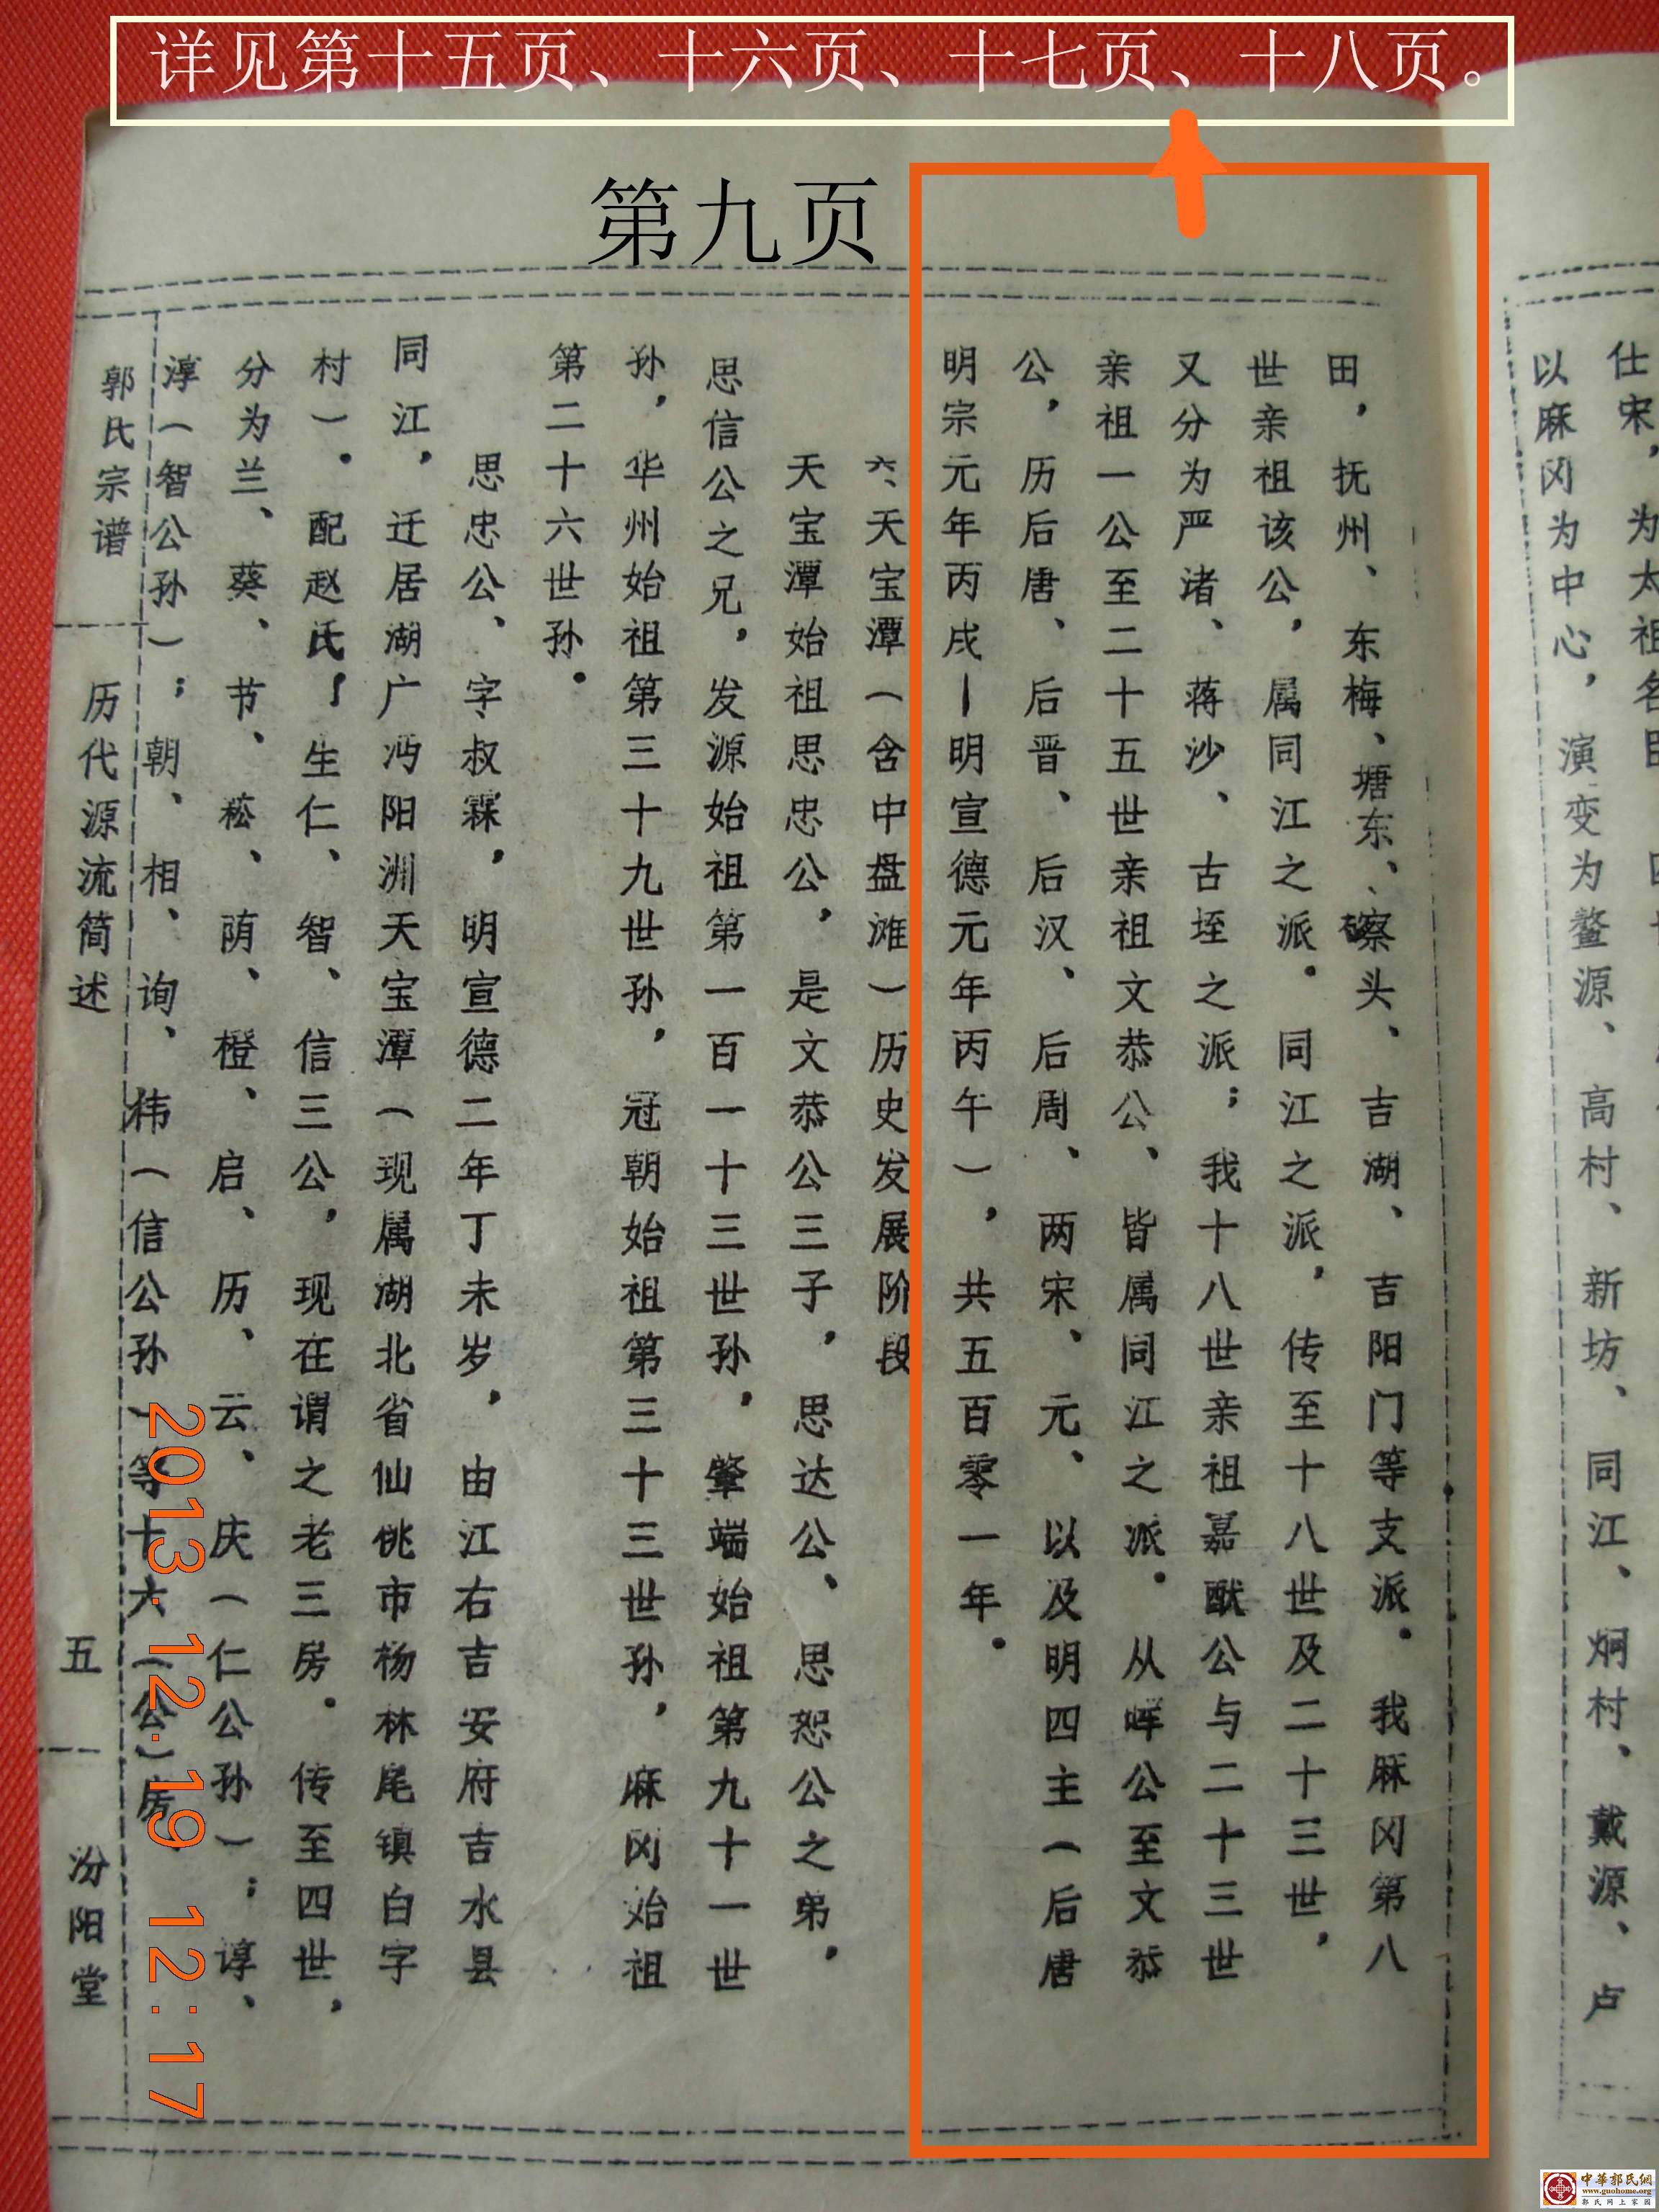 详见第十五页、十六页、十七页、十八页。
第九页
仕宋，为太祖名臣
以麻冈为中心，演变为鳌源、高村、新坊、同江、炯村、戴源、卢
田，抚州、东梅、塘东、磜头、吉湖、吉阳门等支派。我麻冈第八
世亲祖该公，属同江之派。同江之派，传至十八世及二十三世，
又分为严渚、蒋沙、古垤之派；我十八世亲祖嘉猷公与二十三世
亲祖一公至二十五世亲祖文恭公、皆属同江之派。从晖公至文恭
公，历后唐、后晋、后汉、后周、两宋、元、以及明四主（后唐
明宗元年丙戌—明宣德元年丙午），共五百零一年。
六、天宝潭（含中盘滩）历史发展阶段
天宝潭始祖思忠公，是文恭公三子，思达公、思恕公之弟，
思信公之兄，发源始祖第一百一十三世孙，肇端始祖第九十一世
孙，华州始祖第三十九世孙，冠朝始祖第三十三世孙，麻冈始祖
第二十六世孙。
思忠公、字叔霖，明宣德二年丁未岁，由江右吉安府吉水县
同江，迁居湖广沔阳洲天宝潭（现属湖北省仙桃市杨林尾镇白字
村）。配赵氏，生仁、智、信三公，现在谓之老三房。传至四世，
分为兰、葵、节、菘、荫、橙、启、历、云、庆（仁公孙）；谆、
淳（智公孙）；朝、相、询、祎（信公孙）等十六（公）房
郭氏宗谱 历代源流简述 五 汾阳堂
2013.12.19 12:17
中華郭氏網
www.guohome.org
郭氏网上家园